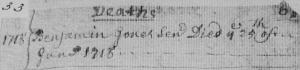 53
Deaths
8
1718 Benjamin Jones Senr Died ye 25th of
June 1718